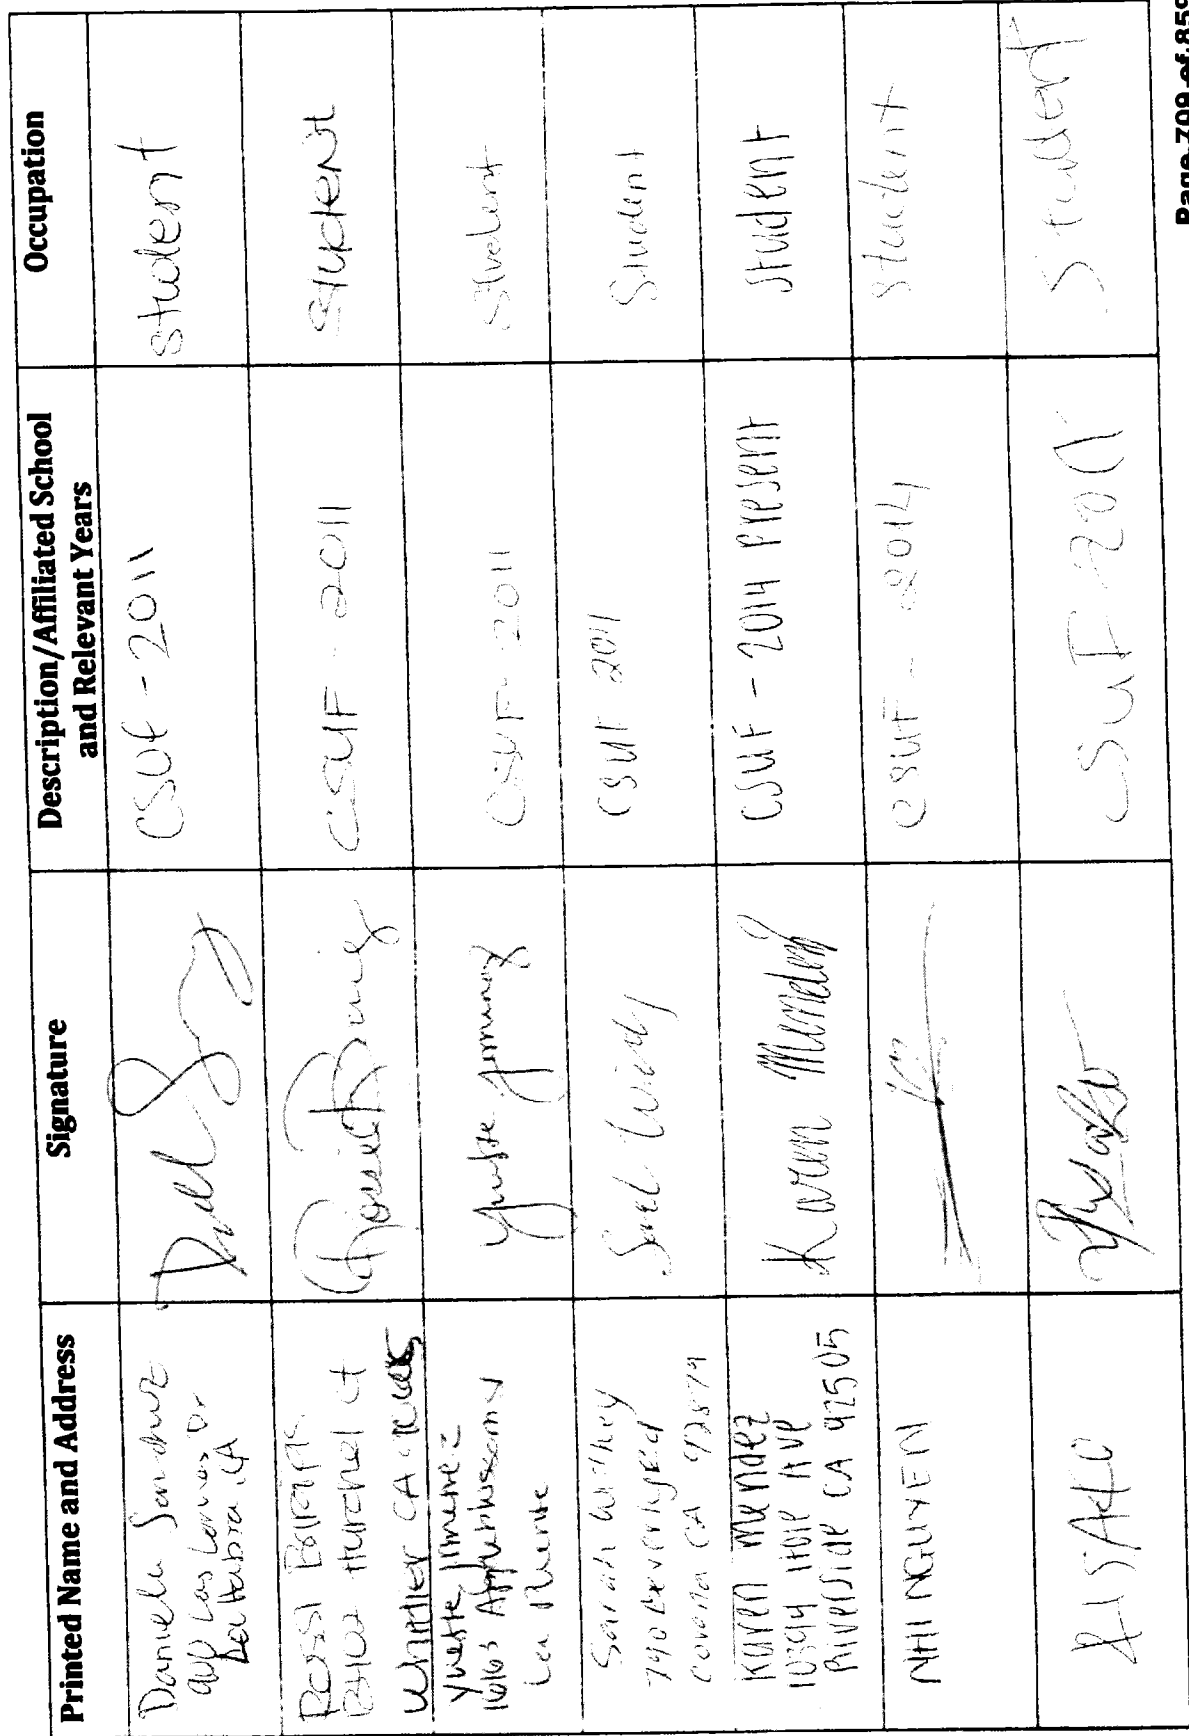 Printed Name and Address
Signature
Description/Affiliated School
and Relevant Years
Occupation
Daniela Sanchez
Las Lomas Dr
La Habra, CA
CSUF - 2011
student
Rossi
Ct
Whittier CA
CSUF - 2011
student
Yvette Jimenez
La Puente
Yvette Jimenez
CSUF - 2011
Student
Sarah Withey
740 Beverly Rd
Corona CA 92879
CSUF 2011
Student
Karen Mendez
Ave
Riverside CA 92505
Karen Mendez
CSUF - 2014 Present
Student
NHI NGUYEN
CSUF - 2014
Student
CSUF
Student
Page 709 of 859